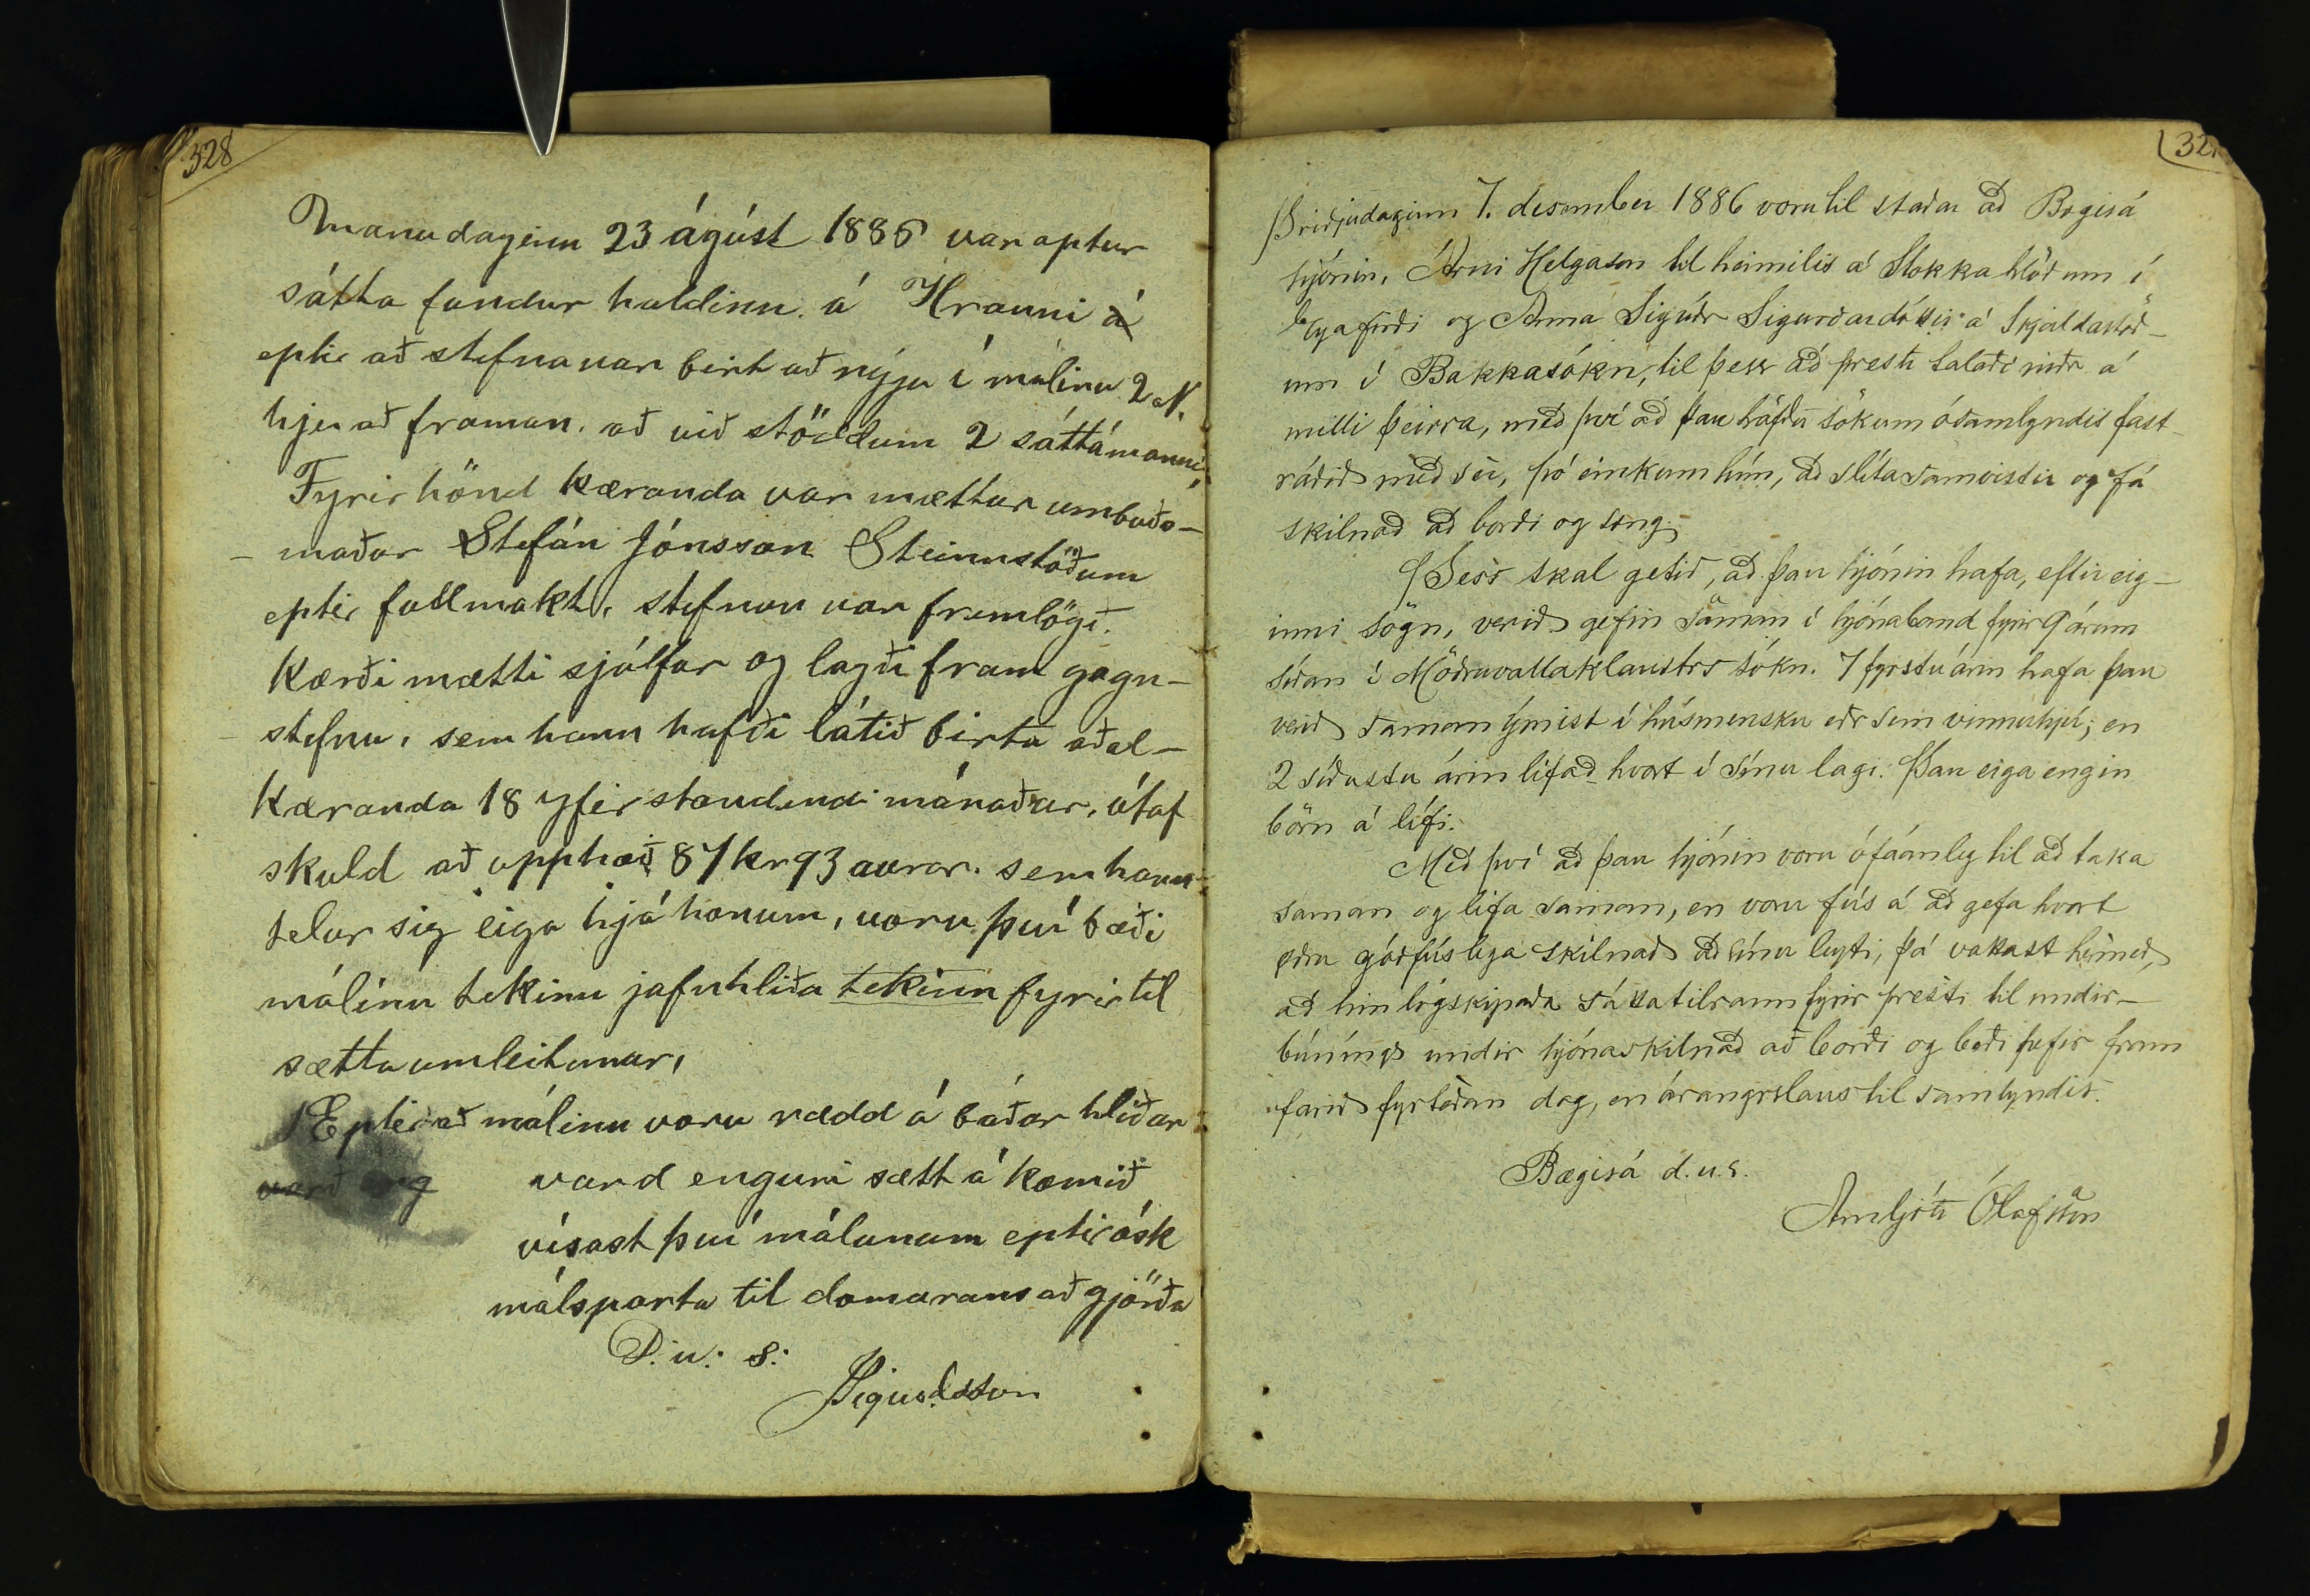 328
Manudaginn 23 ágúst 1886 var aptur
sátta fundur haldinn á Hrauni á
eptir að stefna var birt að nýju í málinu 2 N.
hjer að framan. að við stöddum 2 sáttámanni,
Fyrir hönd Kæranda var mættur umboðs-
- maður Stefán Jónsson Steinnstöðum
eptir fullmakt, stefnan var fremlögð.
Kærði mætti sjálfur og lagði fram gagn-
- stefnu, sem hann hafði látið birta aðal-
Kæranda 18 yfirstandendi mánaðar, útaf
skuld að upphæð 87 kr 93 aurar. sem hann
telur sig eiga hjá honum, voru því bæði
málinu tekinu jafnhliða tekinn fyrir til
sættaumleitunar,
Eptir að málinu voru rædd á báðar hliðar
varð eng vard engum sætt á komið
vísast því málunum eptir ósk
málsparta til domarans að gjörða
D. u. s.
Sigurdsson
32
Þriðjudaginn 7. desember 1886 voru til staðar að Bægisá
hjónin, Árni Helgason til heimilis á Stokkahlöðum í
Eyafirði og Anna Sigríðr Sigurðardóttir á Skjaldastöð-
um í Bakkasókn, til þess að prestr talaði niðr á
milli þeirra, með því að þau höfðu sökum ósamlyndis fast-
ráðið með sér, þó einkum hún, að slíta samvistir og fá
skilnað að borði og sæng.
Þess skal getið, að þau hjónin hafa, eftir eig-
inni sögn, verið gefin saman í hjónaband fyrir 9 árum
síðan í Möðruvallaklaustrs sókn. 7 fyrstu árin hafa þau
verið saman ýmist í húsmensku eðr sem vinnuhjú; en
2 síðustu árin lifað hvort í sínu lagi. Þau eiga engin
börn á lífi.
Með því að þau hjónin voru ófáanleg til að taka
saman og lifa saman, en voru fús á að gefa hvort
öðru góðfúslega skilnað að sínu leyti, þá vottast hérmeð,
að hin lögskipaða sáttatilraun fyrir presti til undir-
búnings undir hjónaskilnað að borði og beði hefir fram
farið fyrtéðan dag, en árangrslaus til samlyndis.
Bægisá d.u.s.
Arnljótr Ólafsson